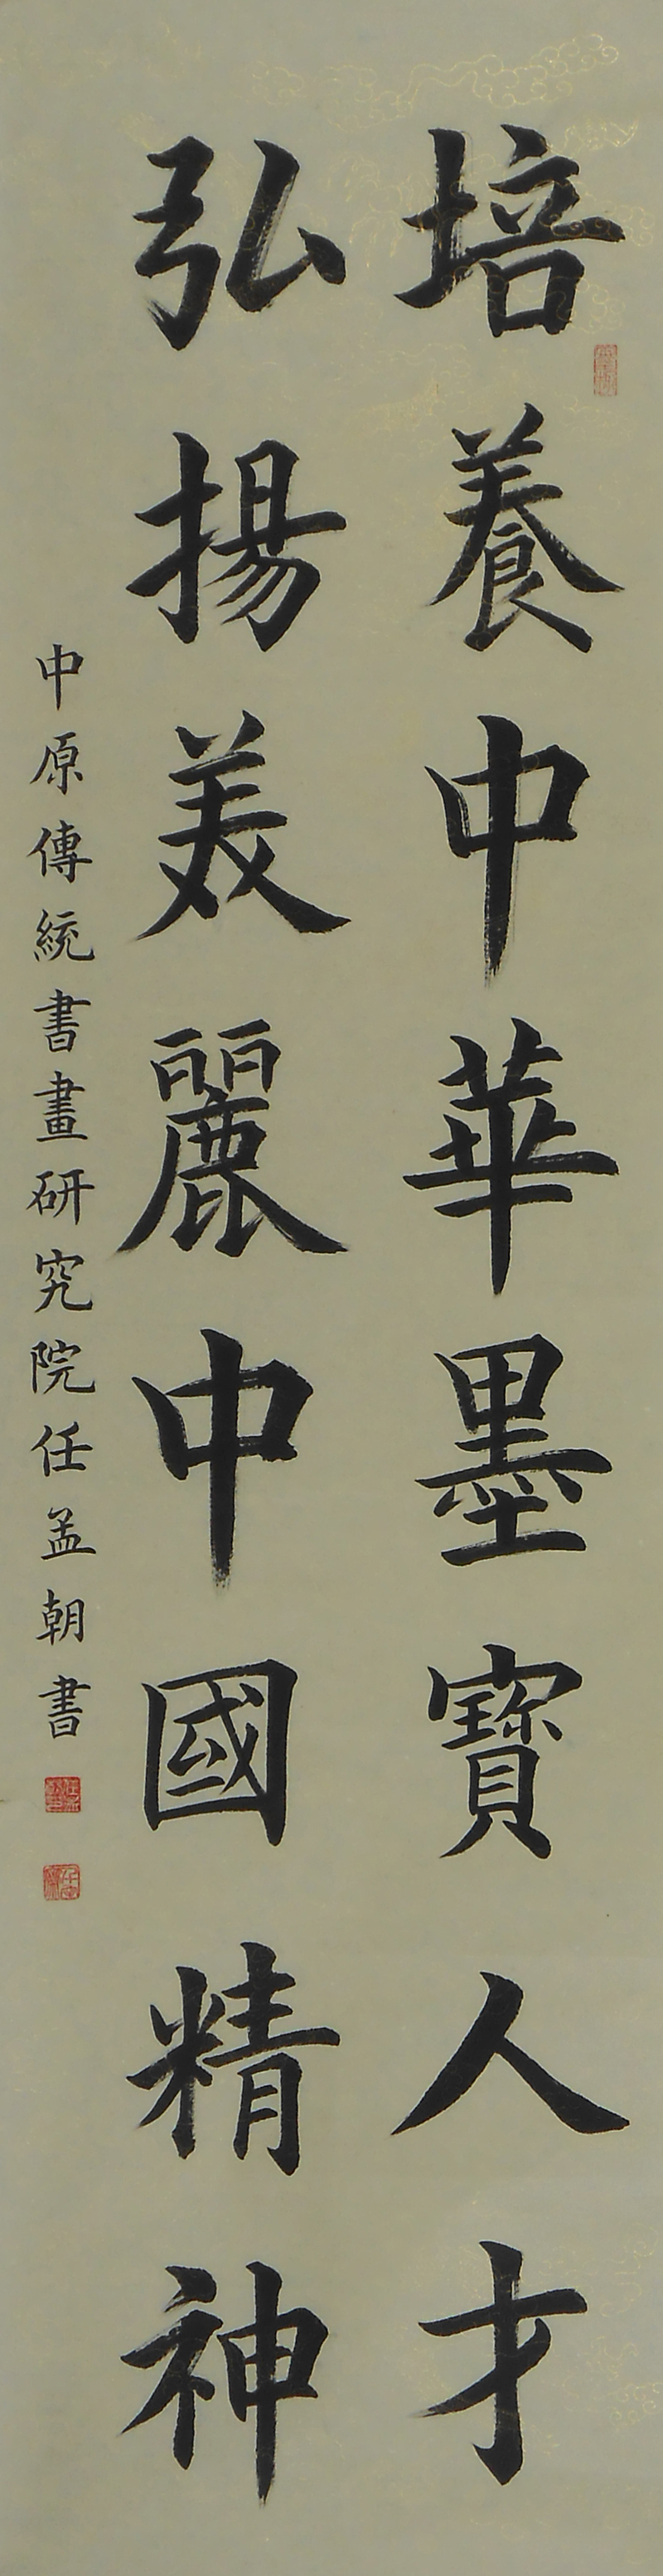 培養中華墨寶人才
弘揚美麗中國精神
中原傳統書畫研究院任孟朝書